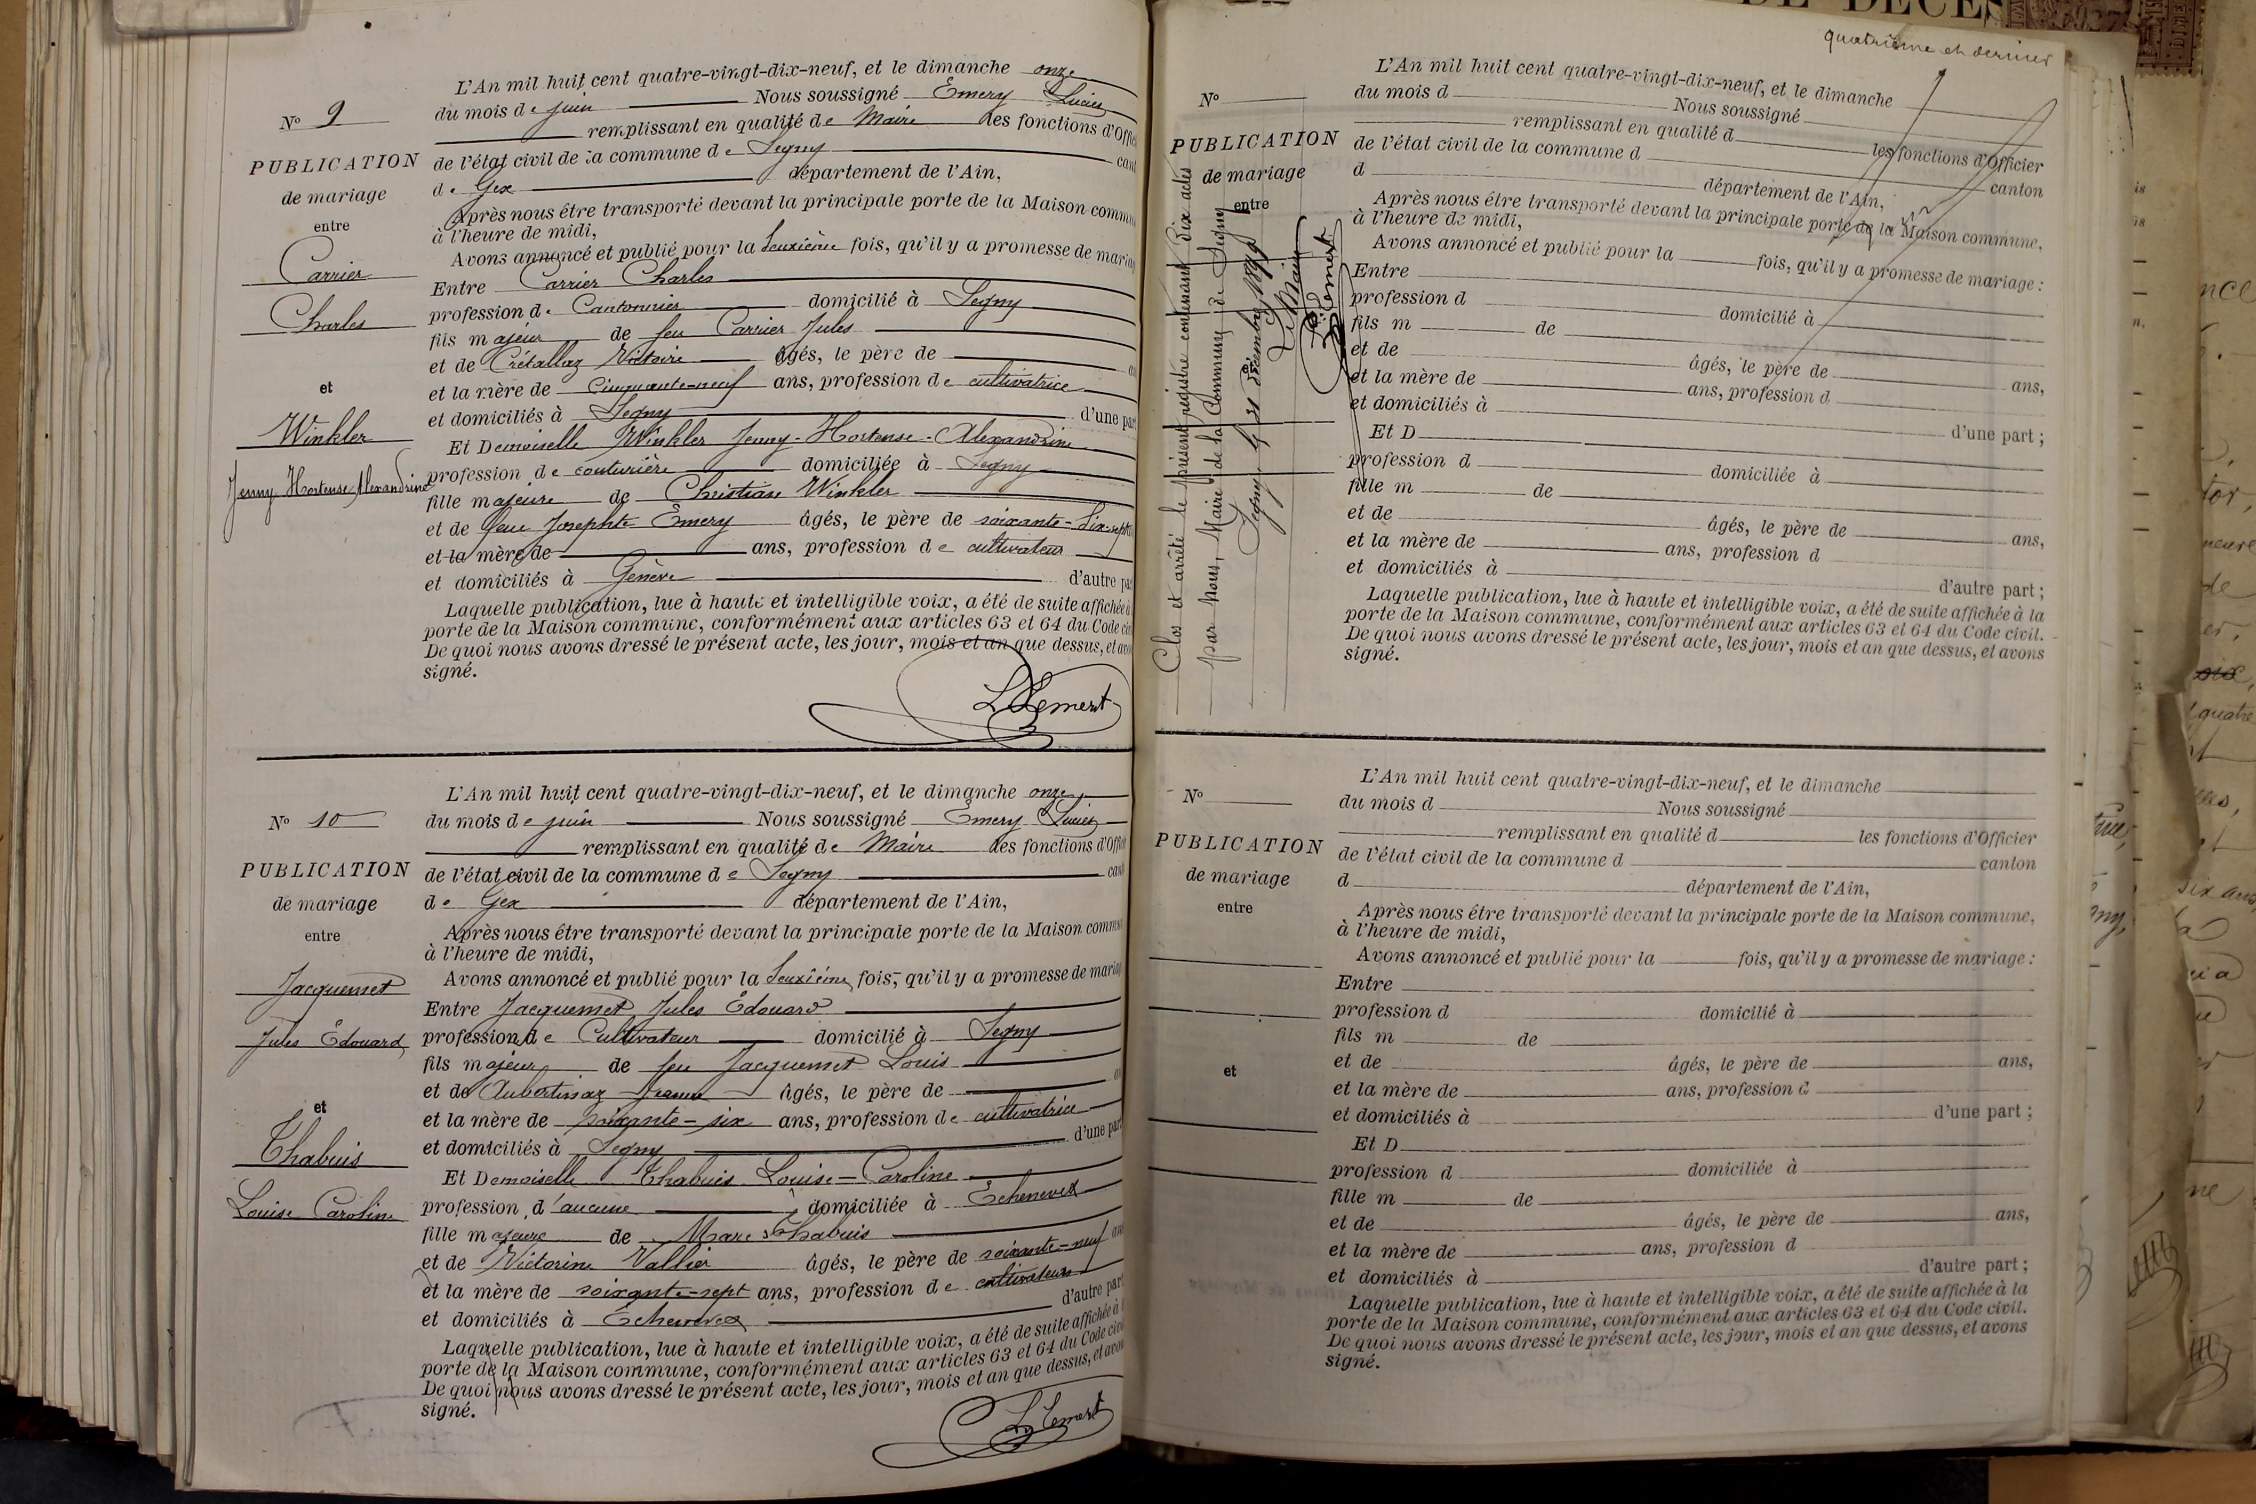 L'An mil huit cent quatre-vingt-dix-neuf, et le dimanche onze
du mois de juin Nous soussigné Émery Lucien
remplissant en qualité de Maire les fonctions d'Offi
de l'état civil de la commune de Segny cant
de Gex département de l'Ain,
Après nous être transporté devant la principale porte de la Maison commu
à l'heure de midi,
Avons annoncé et publié pour la deuxième fois, qu'il y a promesse de maria
Entre Carrier Charles
profession de Cantonnier domicilié à Segny
fils majeur de feu Carrier Jules
et de Crétallaz Victoire âgés, le père de
et la mère de cinquante-neuf ans, profession de cultivatrice
et domiciliés à Segny d'une par
Et Demoiselle Winkler Jenny-Hortense-Alexandrine
profession de couturière domiciliée à Segny
fille majeure de Christian Winkler
et de feue Josephte Émery âgés, le père de soixante-dix-sept
et la mère de ans, profession de cultivateur
et domiciliés à Genève d'autre pa
Laquelle publication, lue à haute et intelligible voix, a été de suite affichée à
porte de la Maison commune, conformément aux articles 63 et 64 du Code civ
De quoi nous avons dressé le présent acte, les jour, mois et an que dessus, et avo
signé.
No 9
PUBLICATION
de mariage
entre
Carrier
Charles
et
Winkler
Jenny Hortense Alexandrine
L'An mil huit cent quatre-vingt-dix-neuf, et le dimanche onze
du mois de juin Nous soussigné Émery Lucien
remplissant en qualité de Maire les fonctions d'Offi
de l'état civil de la commune de Segny can
de Gex département de l'Ain,
Après nous être transporté devant la principale porte de la Maison commu
à l'heure de midi,
Avons annoncé et publié pour la deuxième fois, qu'il y a promesse de mariag
Entre Jacquemet Jules Édouard
profession de Cultivateur domicilié à Segny
fils majeur de feu Jacquemet Louis
et de Jeanne âgés, le père de
et la mère de soixante-six ans, profession de cultivatrice
et domiciliés à Segny d'une part
Et Demoiselle Thabuis Louise-Caroline
profession d'aucune domiciliée à Échenevex
fille majeure de Marc Thabuis
et de Victorine Vallier âgés, le père de soixante-neuf an
et la mère de soixante-sept ans, profession de cultivateurs
et domiciliés à Échenevex d'autre part
Laquelle publication, lue à haute et intelligible voix, a été de suite affichée à
porte de la Maison commune, conformément aux articles 63 et 64 du Code civ
De quoi nous avons dressé le présent acte, les jour, mois et an que dessus, et avo
signé.
No 10
PUBLICATION
de mariage
entre
Jacquemet
Jules Édouard
et
Thabuis
Louise Caroline
DE DÉCÈS
quatrième et dernier
L'An mil huit cent quatre-vingt-dix-neuf, et le dimanche
du mois d Nous soussigné
remplissant en qualité d les fonctions d'Officier
de l'état civil de la commune d canton
d département de l'Ain,
Après nous être transporté devant la principale porte de la Maison commune,
à l'heure de midi,
Avons annoncé et publié pour la fois, qu'il y a promesse de mariage :
Entre
profession d domicilié à
fils m de
et de âgés, le père de ans,
et la mère de ans, profession d
et domiciliés à d'une part ;
Et D
profession d domiciliée à
fille m de
et de âgés, le père de ans,
et la mère de ans, profession d
et domiciliés à d'autre part ;
Laquelle publication, lue à haute et intelligible voix, a été de suite affichée à la
porte de la Maison commune, conformément aux articles 63 et 64 du Code civil.
De quoi nous avons dressé le présent acte, les jour, mois et an que dessus, et avons
signé.
No
PUBLICATION
de mariage
entre
Clos et arrêté le présent registre contenant dix actes
par nous, Maire de la Commune de Segny
Segny le 31 Décembre 1899
Le Maire
L'An mil huit cent quatre-vingt-dix-neuf, et le dimanche
du mois d Nous soussigné
remplissant en qualité d les fonctions d'Officier
de l'état civil de la commune d canton
d département de l'Ain,
Après nous être transporté devant la principale porte de la Maison commune,
à l'heure de midi,
Avons annoncé et publié pour la fois, qu'il y a promesse de mariage :
Entre
profession d domicilié à
fils m de
et de âgés, le père de ans,
et la mère de ans, profession d
et domiciliés à d'une part ;
Et D
profession d domiciliée à
fille m de
et de âgés, le père de ans,
et la mère de ans, profession d
et domiciliés à d'autre part ;
Laquelle publication, lue à haute et intelligible voix, a été de suite affichée à la
porte de la Maison commune, conformément aux articles 63 et 64 du Code civil.
De quoi nous avons dressé le présent acte, les jour, mois et an que dessus, et avons
signé.
No
PUBLICATION
de mariage
entre
et